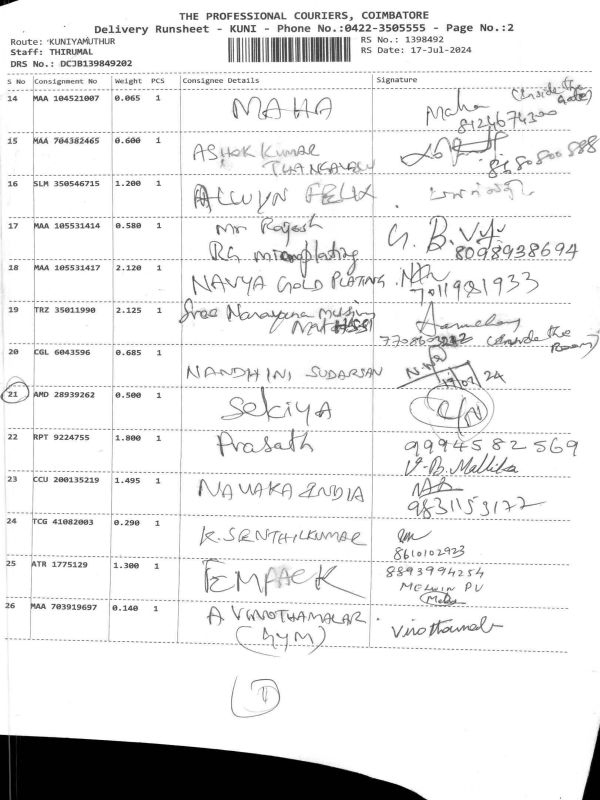 THE PROFESSIONAL COURIERS, COIMBATORE
Delivery Runsheet - KUNI - Phone No.:0422-3505555 - Page No.:2
Route: KUNIYAMUTHUR
RS No.: 1398492
Staff: THIRUMAL
RS Date: 17-Jul-2024
DRS No.: DCJB139849202
S No Consignment No Weight PCS Consignee Details Signature
14 MAA 104521007 0.065 1 MAHA Maha (Inside the Gate)
15 MAA 704382465 0.600 1 ASHOK KUMAR
16 SLM 350546715 1.200 1 ALLWYN FELIX
17 MAA 105531414 0.580 1 Mr Rajesh
RG microplating 8098938694
18 MAA 105531417 2.120 1 NAVYA GOLD PLATING
19 TRZ 35011990 2.125 1 Sree Narayana
(Inside the Room)
20 CGL 6043596 0.685 1 NANDHINI SUDARSAN
21 AMD 28939262 0.500 1 Sekiya
22 RPT 9224755 1.800 1 Prasath 9994582569
V.B. Mallika
23 CCU 200135219 1.495 1 NAVAKA INDIA
9831153177
24 TCG 41082003 0.290 1 K. SENTHILKUMAR
8610102923
25 ATR 1775129 1.300 1 TEMPACK 8893994254
MELWIN PV
26 MAA 703919697 0.140 1 A VINOTHAMALAR
(GYM)